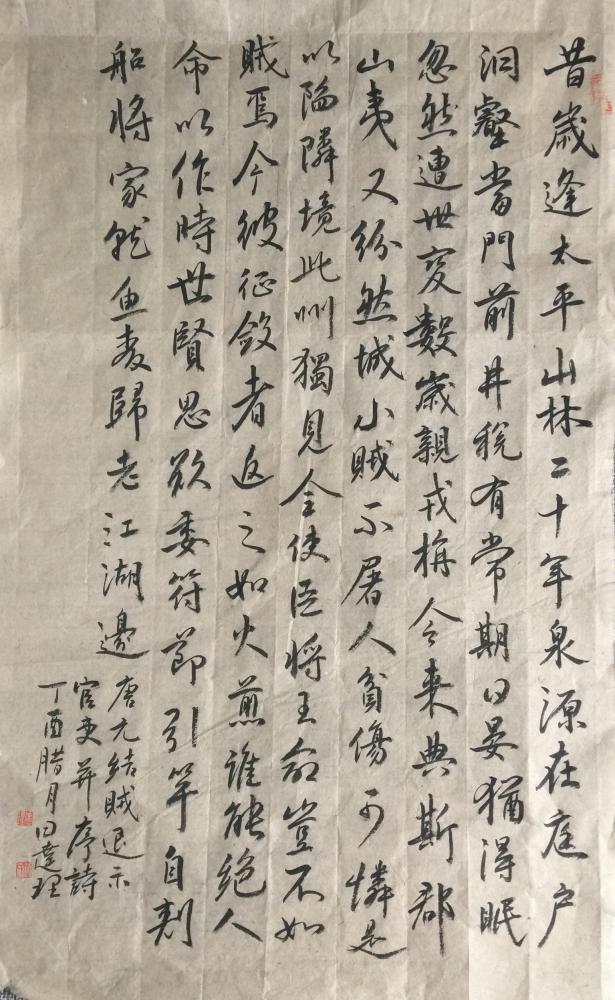 昔歲逢太平山林二十年泉源在庭户
洞壑當門前井稅有常期日晏猶得眠
忽然遭世变數歲親戎旃今来典斯郡
山夷又紛然城小賊不屠人貧傷可憐是
以陥隣境此州獨見全使臣将王命豈不如
賊焉今彼征斂者迫之如火煎誰能絶人
命以作時世賢思欲委符節引竿自刺
船将家就魚麦歸老江湖邊
唐元结賊退示
官吏并序詩
丁酉腊月日